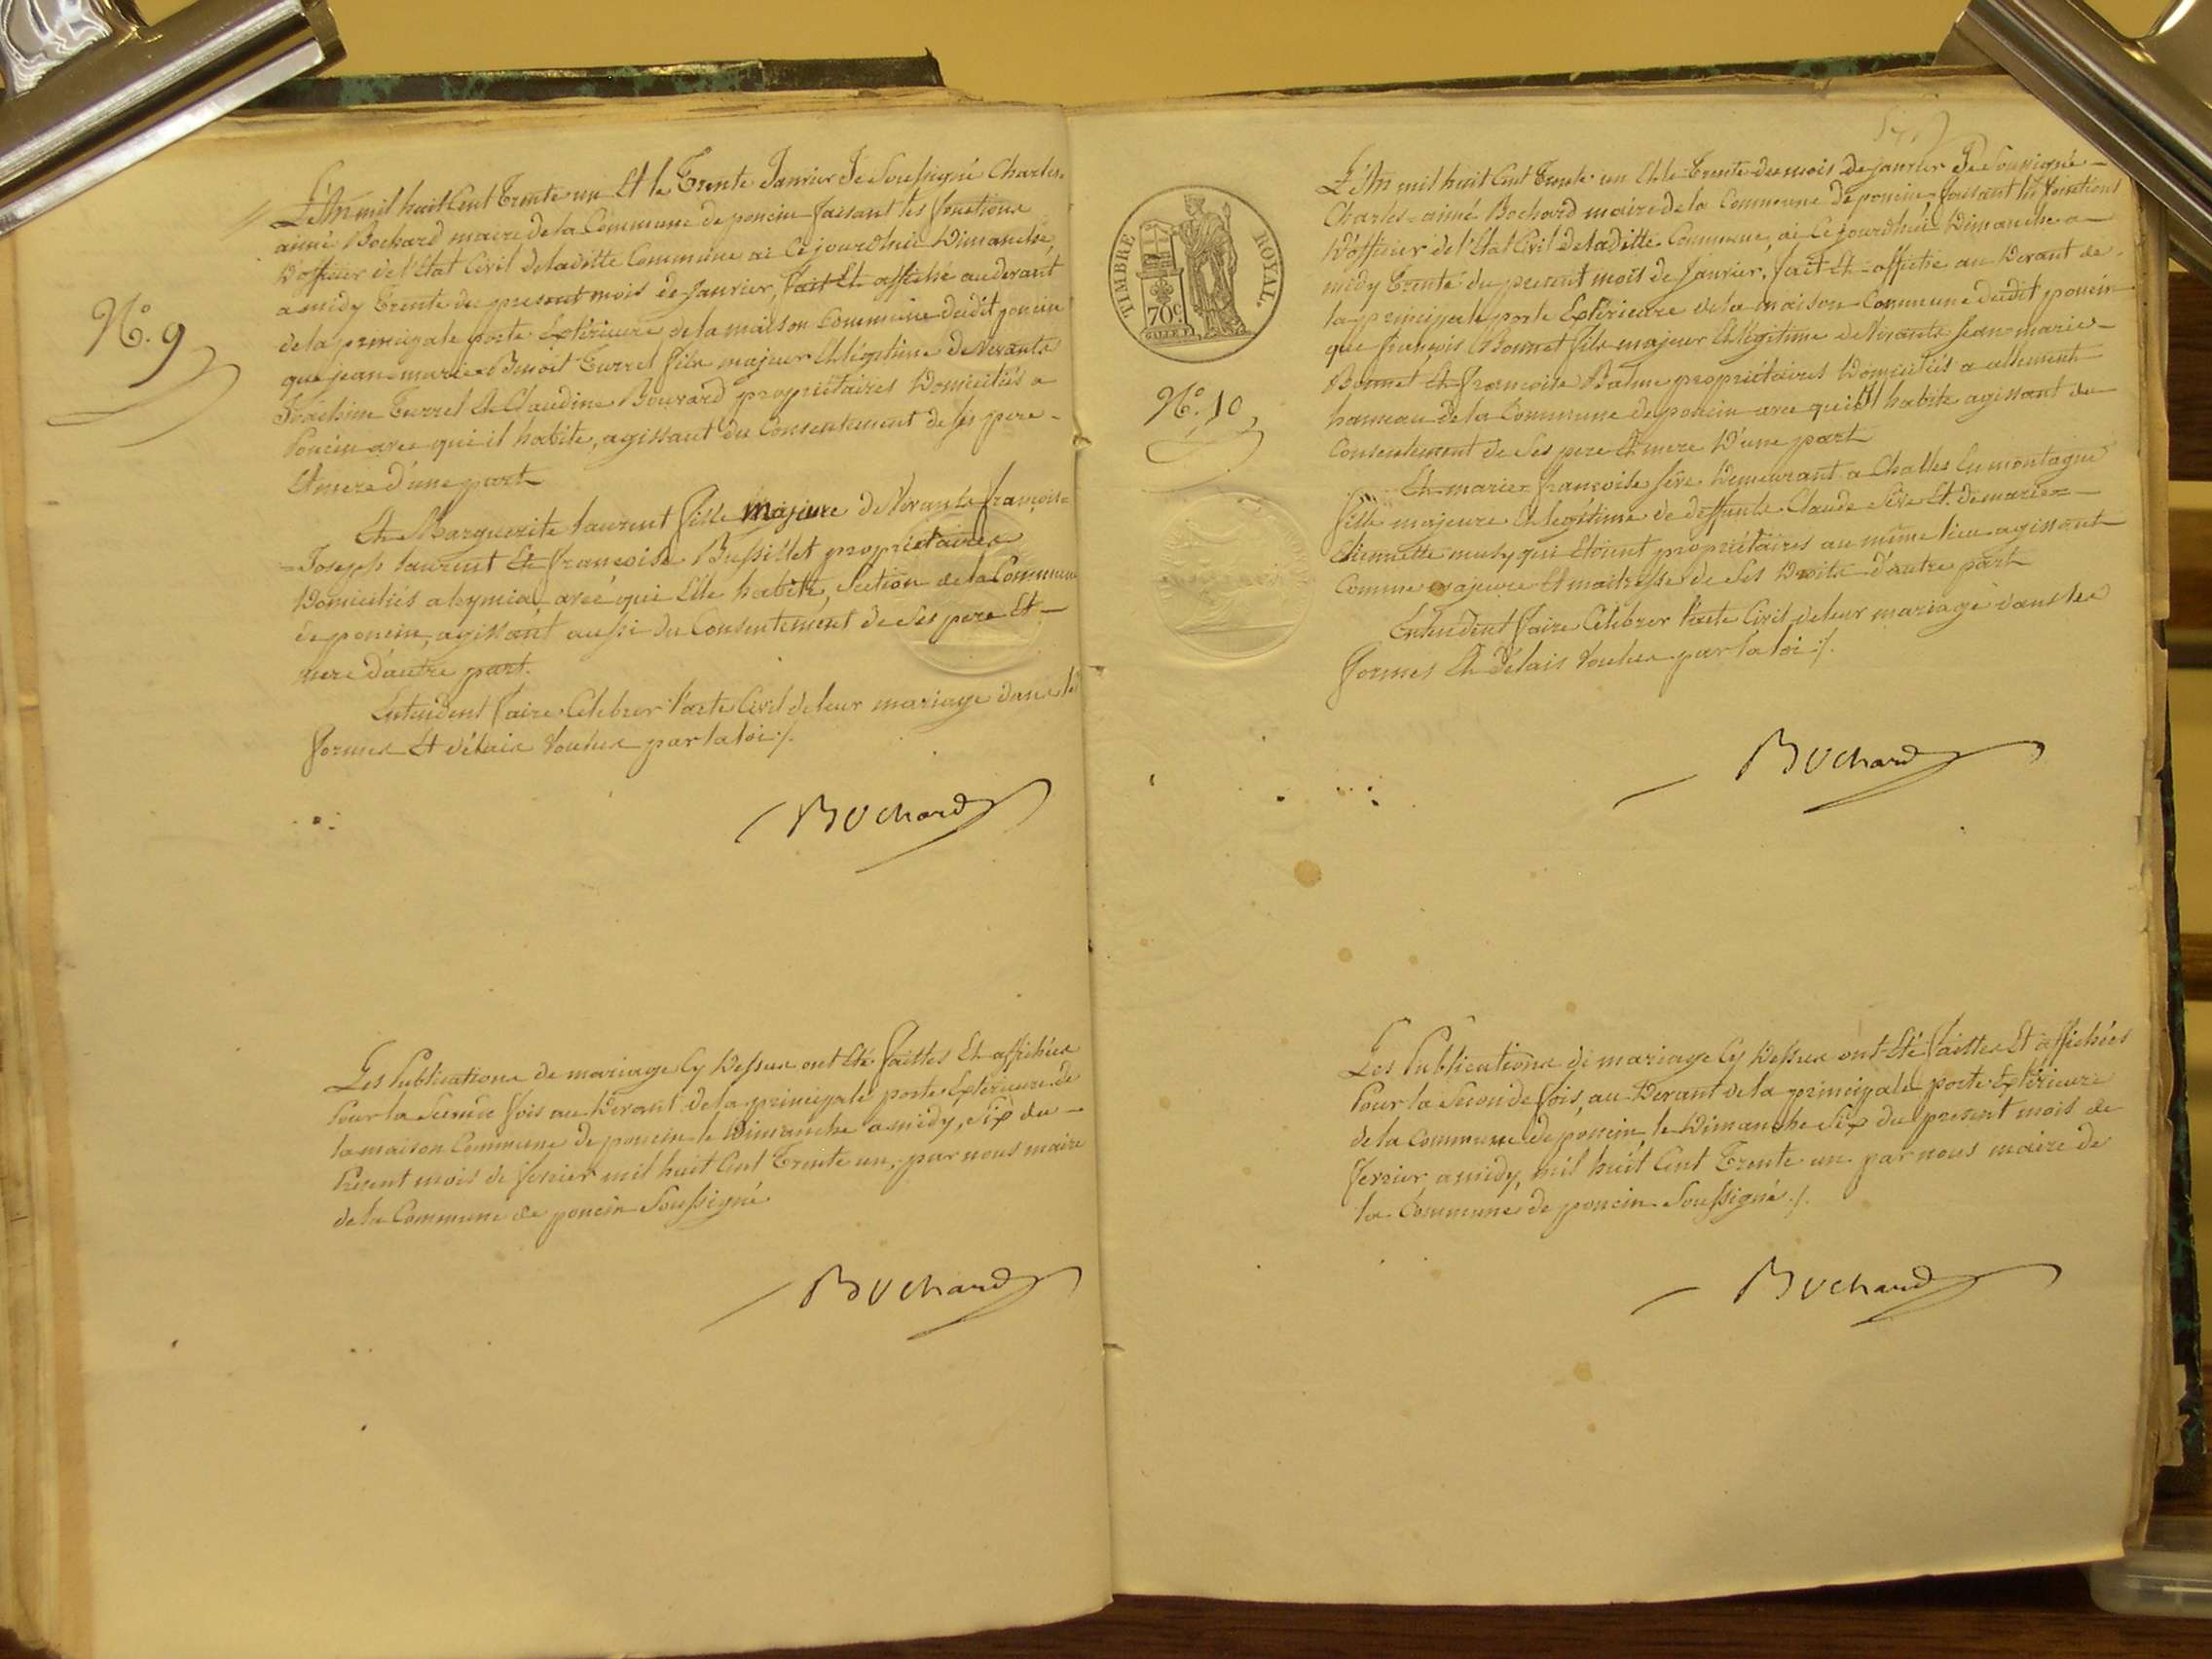 N.° 9
L'An mil huit Cent Trente un Et le Trente Janvier Je Soussigné Charles=
aimé Bochard maire de la Commune de poncin faisant les fonctions
D'officier de l'Etat Civil de laditte Commune ai Cejourdhui Dimanche,
a midy Trente du present mois de Janvier, fait Et affiché audevant
de la principale porte Extérieure de la maison Commune dudit poncin
que jean=marie=Benoit Turrel fils majeur Et légitime de vivants
Joachim Turrel Et Claudine Bouvard propriétaires Domiciliés a
Poncin avec qui il habite, agissant du Consentement de ses pere –
Et mere d'une part
Et Marguerite laurent fille majeure de vivants françois=
=Joseph laurent Et françoise Bussillet propriétaires
Domiciliés a leymiat, avec qui Elle habite, Section de la Commune
de poncin, agissant aussi du Consentement de Ses pere Et –
mere d'autre part.
Entendent faire Célébrer l'acte Civil de leur mariage dans les
formes Et délais voulus par la loi ./.
Bochard
Les Publications de mariage Cy Dessus ont Eté faittes Et affichées
Pour la Seconde fois au Devant de la principale porte Extérieure de
la maison Commune de poncin le Dimanche a midy, Six du –
Present mois de fevrier mil huit Cent Trente un, par nous maire
de la Commune de poncin Soussigné
Bochard
TIMBRE ROYAL.
70c.
N.° 10
L'An mil huit Cent Trente un Et le Trente du mois de Janvier Je Soussigné –
Charles=aimé Bochard maire de la Commune de poncin, faisant les fonctions
D'officier de l'Etat Civil de laditte Commune, ai Cejourdhui Dimanche a –
midy Trente du present mois de Janvier, fait Et affiché au Devant de
la principale porte Extérieure de la maison Commune dudit poncin
que françois Bonnet fils majeur Et légitime de vivants Jean=marie –
Bonnet Et françoise Balme propriétaires Domiciliés a allement
hameau de la Commune de poncin avec qui il habite agissant du
Consentement de Ses pere Et mere D'une part
Et marie=françoise Sève Demeurant a Challes En montagne
fille majeure Et legitime de deffunts Claude Sève Et de marie=
Etiennette musy qui Etoient propriétaires au même lieu agissant
Comme majeure Et maitresse de Ses Droits d'autre part
Entendent faire Célébrer l'acte Civil de leur mariage dans les
formes Et Délais voulus par la loi ./.
Bochard
Les Publications de mariage Cy Dessus ont Eté faittes Et affichées
Pour la Seconde fois, au Devant de la principale porte Extérieure
de la Commune de poncin, le Dimanche Six du present mois de
fevrier a midy, mil huit Cent Trente un par nous maire de
la Commune de poncin Soussigné ./.
Bochard